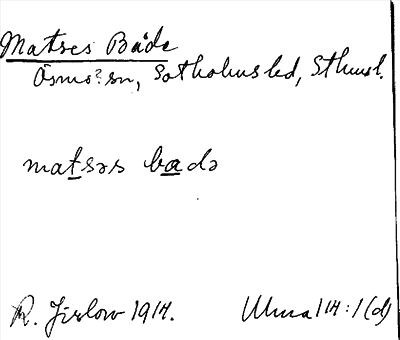 Matses Båda
Ösmo? sn, Sotholms hd, Sthmsl.
matsəs badə
R. Jirlow 1914. Ulma 114:1 (d)